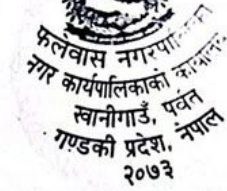 फलवास नगरपालिका
नगर कार्यपालिकाको कार्यालय
खानीगाउँ, पर्वत
गण्डकी प्रदेश, नेपाल
२०७३